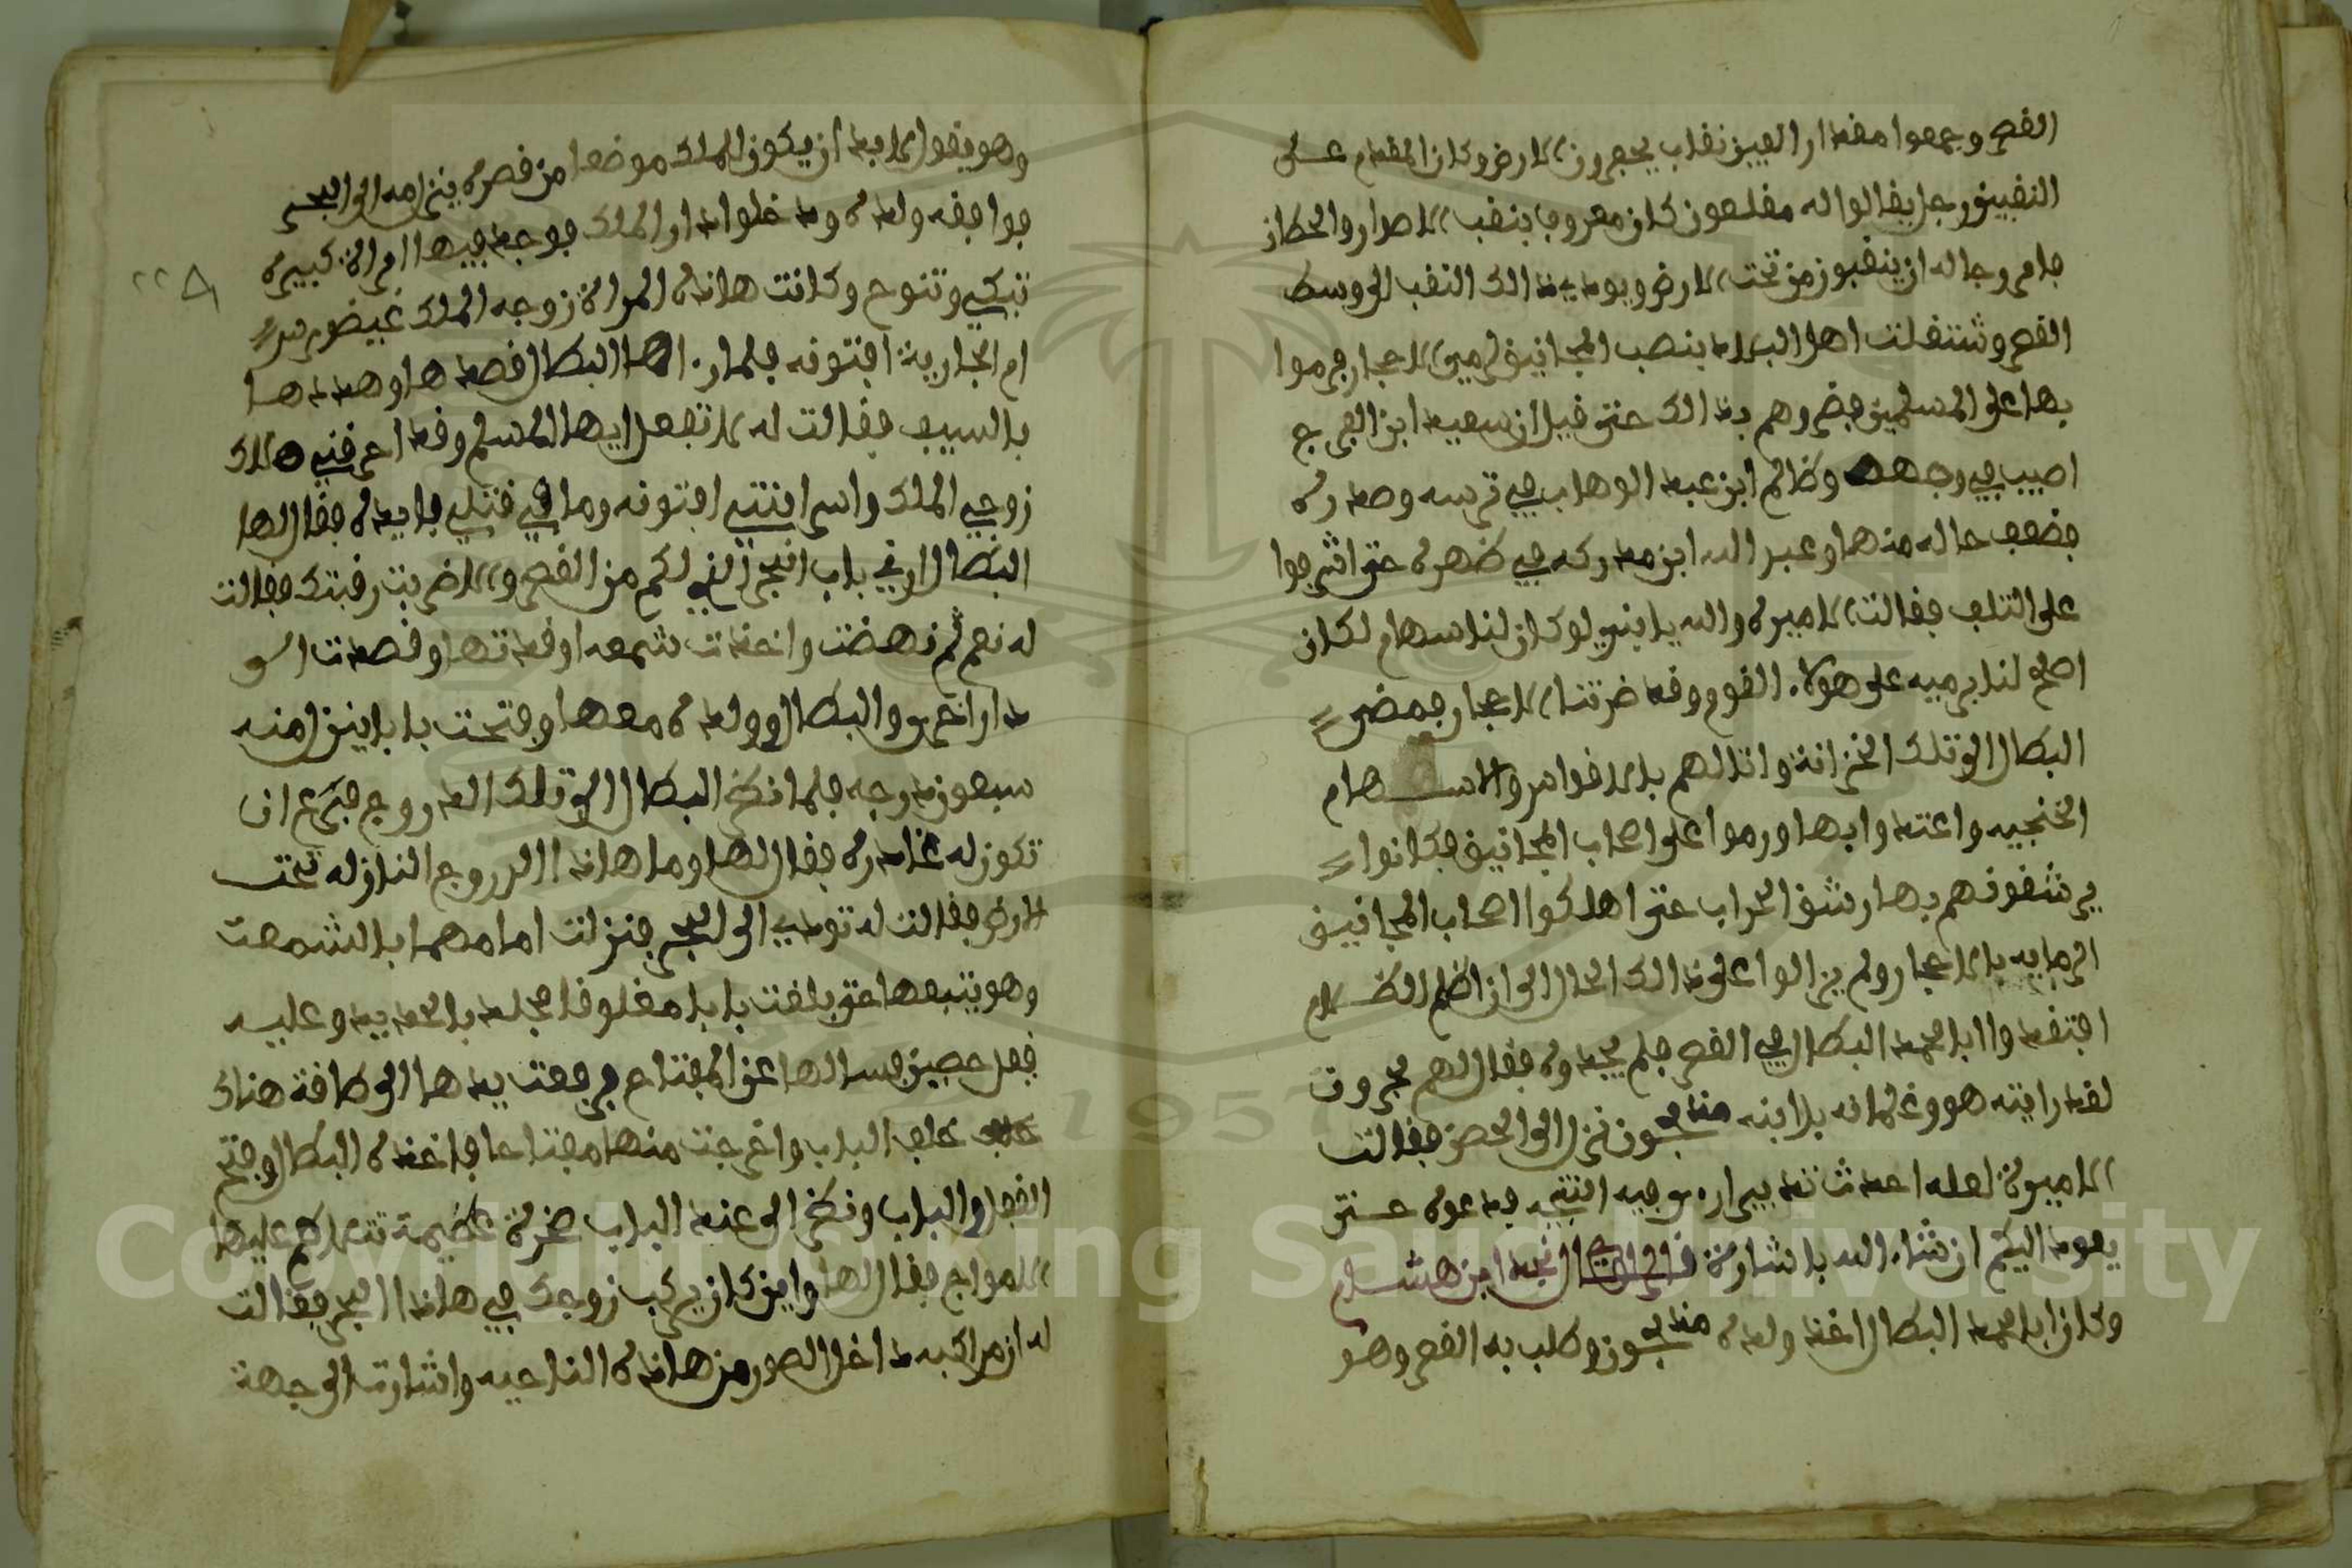 القصر وجمعوا مقدار الفين نقاب يحفرون الارض وكان المقدم على
النقبين رجل يقالوا له مقلعون كان معروف بنقب الاصوار والحطان
فامر رجاله ان ينقبوا من تحت الارض ويودي ذالك النقب الى وسط
القصر وشتغلت اهل البلاد بنصب المجانيق لرمي الاحجار فرموا
بها على المسلمين فضروهم بذالك حتى قيل ان سعيد ابن الفرج
اصيب في وجهه وظالم ابن عبد الوهاب في ترسه وصدره
فضعف حاله منها وعبد الله ابن مدركه في ظهره حتى اشرفوا
على التلف فقالت الاميره والله يا بني لو كان لنا سهام لكان
اصلح لنا نرميه على هولاء القوم وقد ضرتنا الاحجار فمضى
البطال الى تلك الخزانة واتالهم بالاقواس والاسهام
الخنجيه واعتدوا بها ورموا على اصحاب المجانيق فكانوا
يرشقونهم بها رشق الحراب حتى اهلكوا اصحاب المجانيق
الرمايه بالاحجار ولم يزالوا على ذالك الحال الى ان اظلم الظلام
افتقدوا ابا محمد البطال في القصر فلم يجدوه فقال لهم مجرون
لقد رايته هو وغلمانه بل ابنه مذبحون نزل الى الحصن فقالت
الاميرة لعله احدث تدبير اره يوجيه افتيه فدعوه حتى
يعود اليكم ان شاء الله باشارة قال الراوي نجد ابن هشام
وكان ابا محمد البطال اخذ ولده مذبحون وطلب به القصر وهو
وهو يقول لابد ان يكون للملك موضعا من قصره ينزل منه الى البحر
فوافقه ولده ودخلوا دار الملك فوجد فيها امراة كبيره
تبكي وتنوح وكانت هاذه المراة زوجه الملك غيضورس
ام الجارية افتونه فلما راها البطال قصدها وهددها
بالسيف فقالت له لا تفعل ايها المسلم وقد احرقني هلاك
زوجي الملك واسر ابنتي افتونه وما في قتلي فايده فقال لها
البطال اريني باب البحر الذي لكم من القصر والا ضربت رقبتك فقالت
له نعم ثم نهضت واخذت شمعه اوقدتها وقصدت الى
دار اخرى والبطال وولده معها وفتحت بابا ينزل منه
سبعون درجه فلما نظر البطال الى تلك الدروج فزع ان
تكون له غادره فقال لها وما هاذا الدروج النازله تحت
الارض فقالت له تودي الى البحر فنزلت امامهما بالشمعت
وهو يتبعها حتى بلغت بابا مغلوقا مجلد بالحديد وعليه
قفل حصين فسالها عن المفتاح فرفعت يدها الى طاقة هناك
خلف الباب واخرجت منها مفتاحا فاخذه البطال وفتح
القفل والباب ونظر الى عند الباب صخرة عظيمة تتلاطم عليها
الامواج فقال لها واين كان يركب زوجك في هاذا البحر فقالت
له ان مراكبه داخل الصور من هاذه الناحيه واشارت الى جهة
٢٢٨